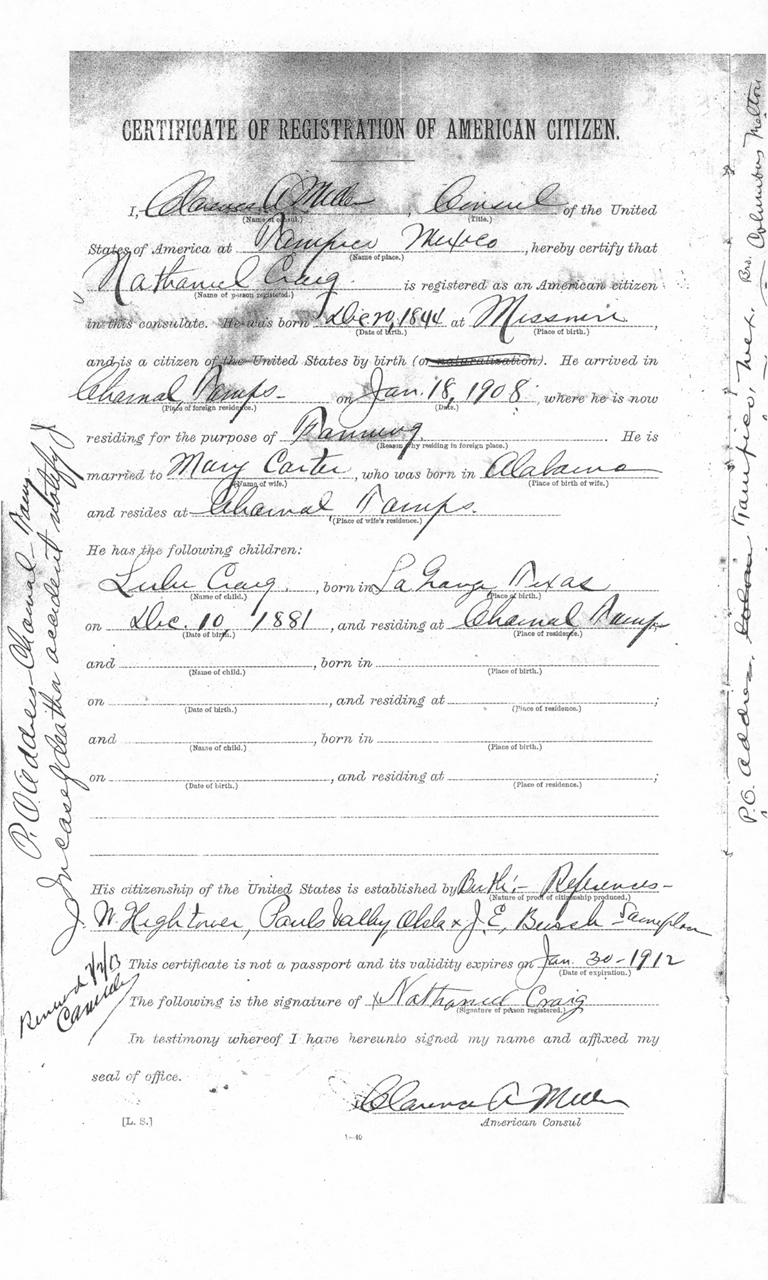 CERTIFICATE OF REGISTRATION OF AMERICAN CITIZEN.
I, Clarence A Miller, Consul of the United
(Name of consul.) (Title.)
States of America at Tampico Mexico, hereby certify that
(Name of place.)
Nathaniel Craig is registered as an American citizen
(Name of person registered.)
in this consulate. He was born Dec 20, 1844 at Missouri,
(Date of birth.) (Place of birth.)
and is a citizen of the United States by birth (or naturalization). He arrived in
Chamal, Tamps- on Jan. 18, 1908, where he is now
(Place of foreign residence.) (Date.)
residing for the purpose of Farming. He is
(Reason why residing in foreign place.)
married to Mary Carter, who was born in Alabama
(Name of wife.) (Place of birth of wife.)
and resides at Chamal Tamps.
(Place of wife's residence.)
He has the following children:
Lulu Craig, born in La Grange Texas
(Name of child.) (Place of birth.)
on Dec. 10, 1881, and residing at Chamal Tamps
(Date of birth.) (Place of residence.)
and , born in
(Name of child.) (Place of birth.)
on , and residing at ;
(Date of birth.) (Place of residence.)
and , born in
(Name of child.) (Place of birth.)
on , and residing at ;
(Date of birth.) (Place of residence.)
His citizenship of the United States is established by Birth:- References-
(Nature of proof of citizenship produced.)
W. Hightower, Pauls Valley, Okla & J. E,
This certificate is not a passport and its validity expires on Jan. 30-1912
(Date of expiration.)
The following is the signature of x Nathaniel Craig
(Signature of person registered.)
In testimony whereof I have hereunto signed my name and affixed my
seal of office.
Clarence A Miller
[L. S.] American Consul
1-40
P.O. Address-Chamal-Tamp.
In case of death or accident notify
Renewed
P.O. Address, Tampico, Mex. Bro. Columbus Melton